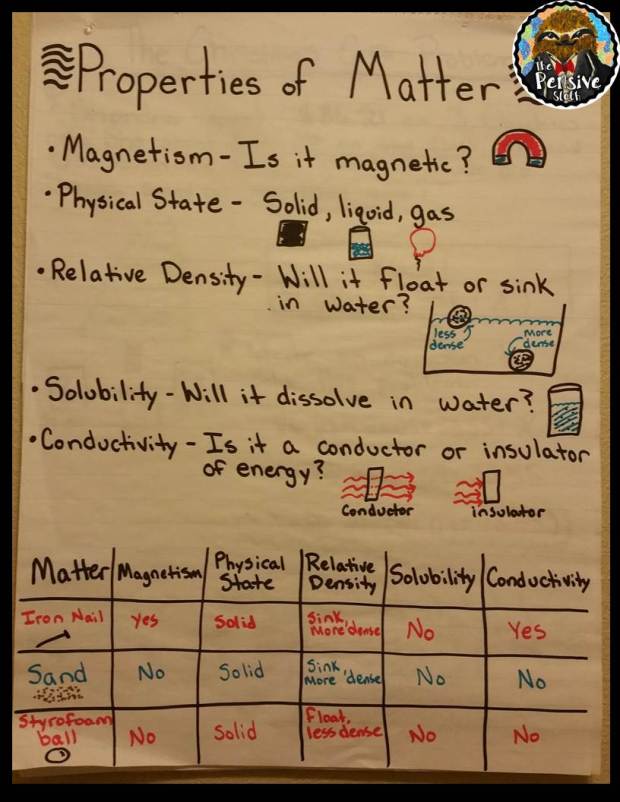 The
Pensive
Sloth
Properties of Matter
• Magnetism - Is it magnetic?
• Physical State - Solid, liquid, gas
• Relative Density - Will it float or sink
in water?
less dense
more dense
• Solubility - Will it dissolve in water?
• Conductivity - Is it a conductor or insulator
of energy?
Conductor
insulator
Matter Magnetism Physical State Relative Density Solubility Conductivity
Iron Nail Yes Solid Sink, More dense No Yes
Sand No Solid Sink, More dense No No
Styrofoam ball No Solid Float, less dense No No